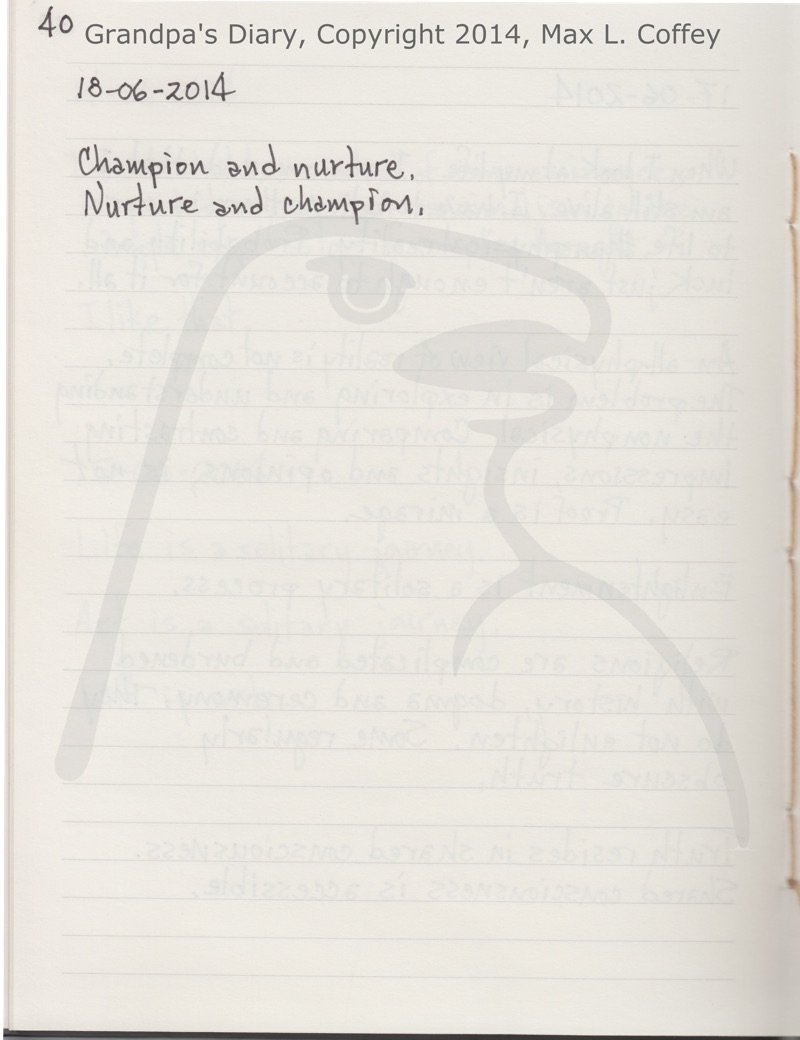 40 Grandpa's Diary, Copyright 2014, Max L. Coffey
18-06-2014
Champion and nurture.
Nurture and champion.